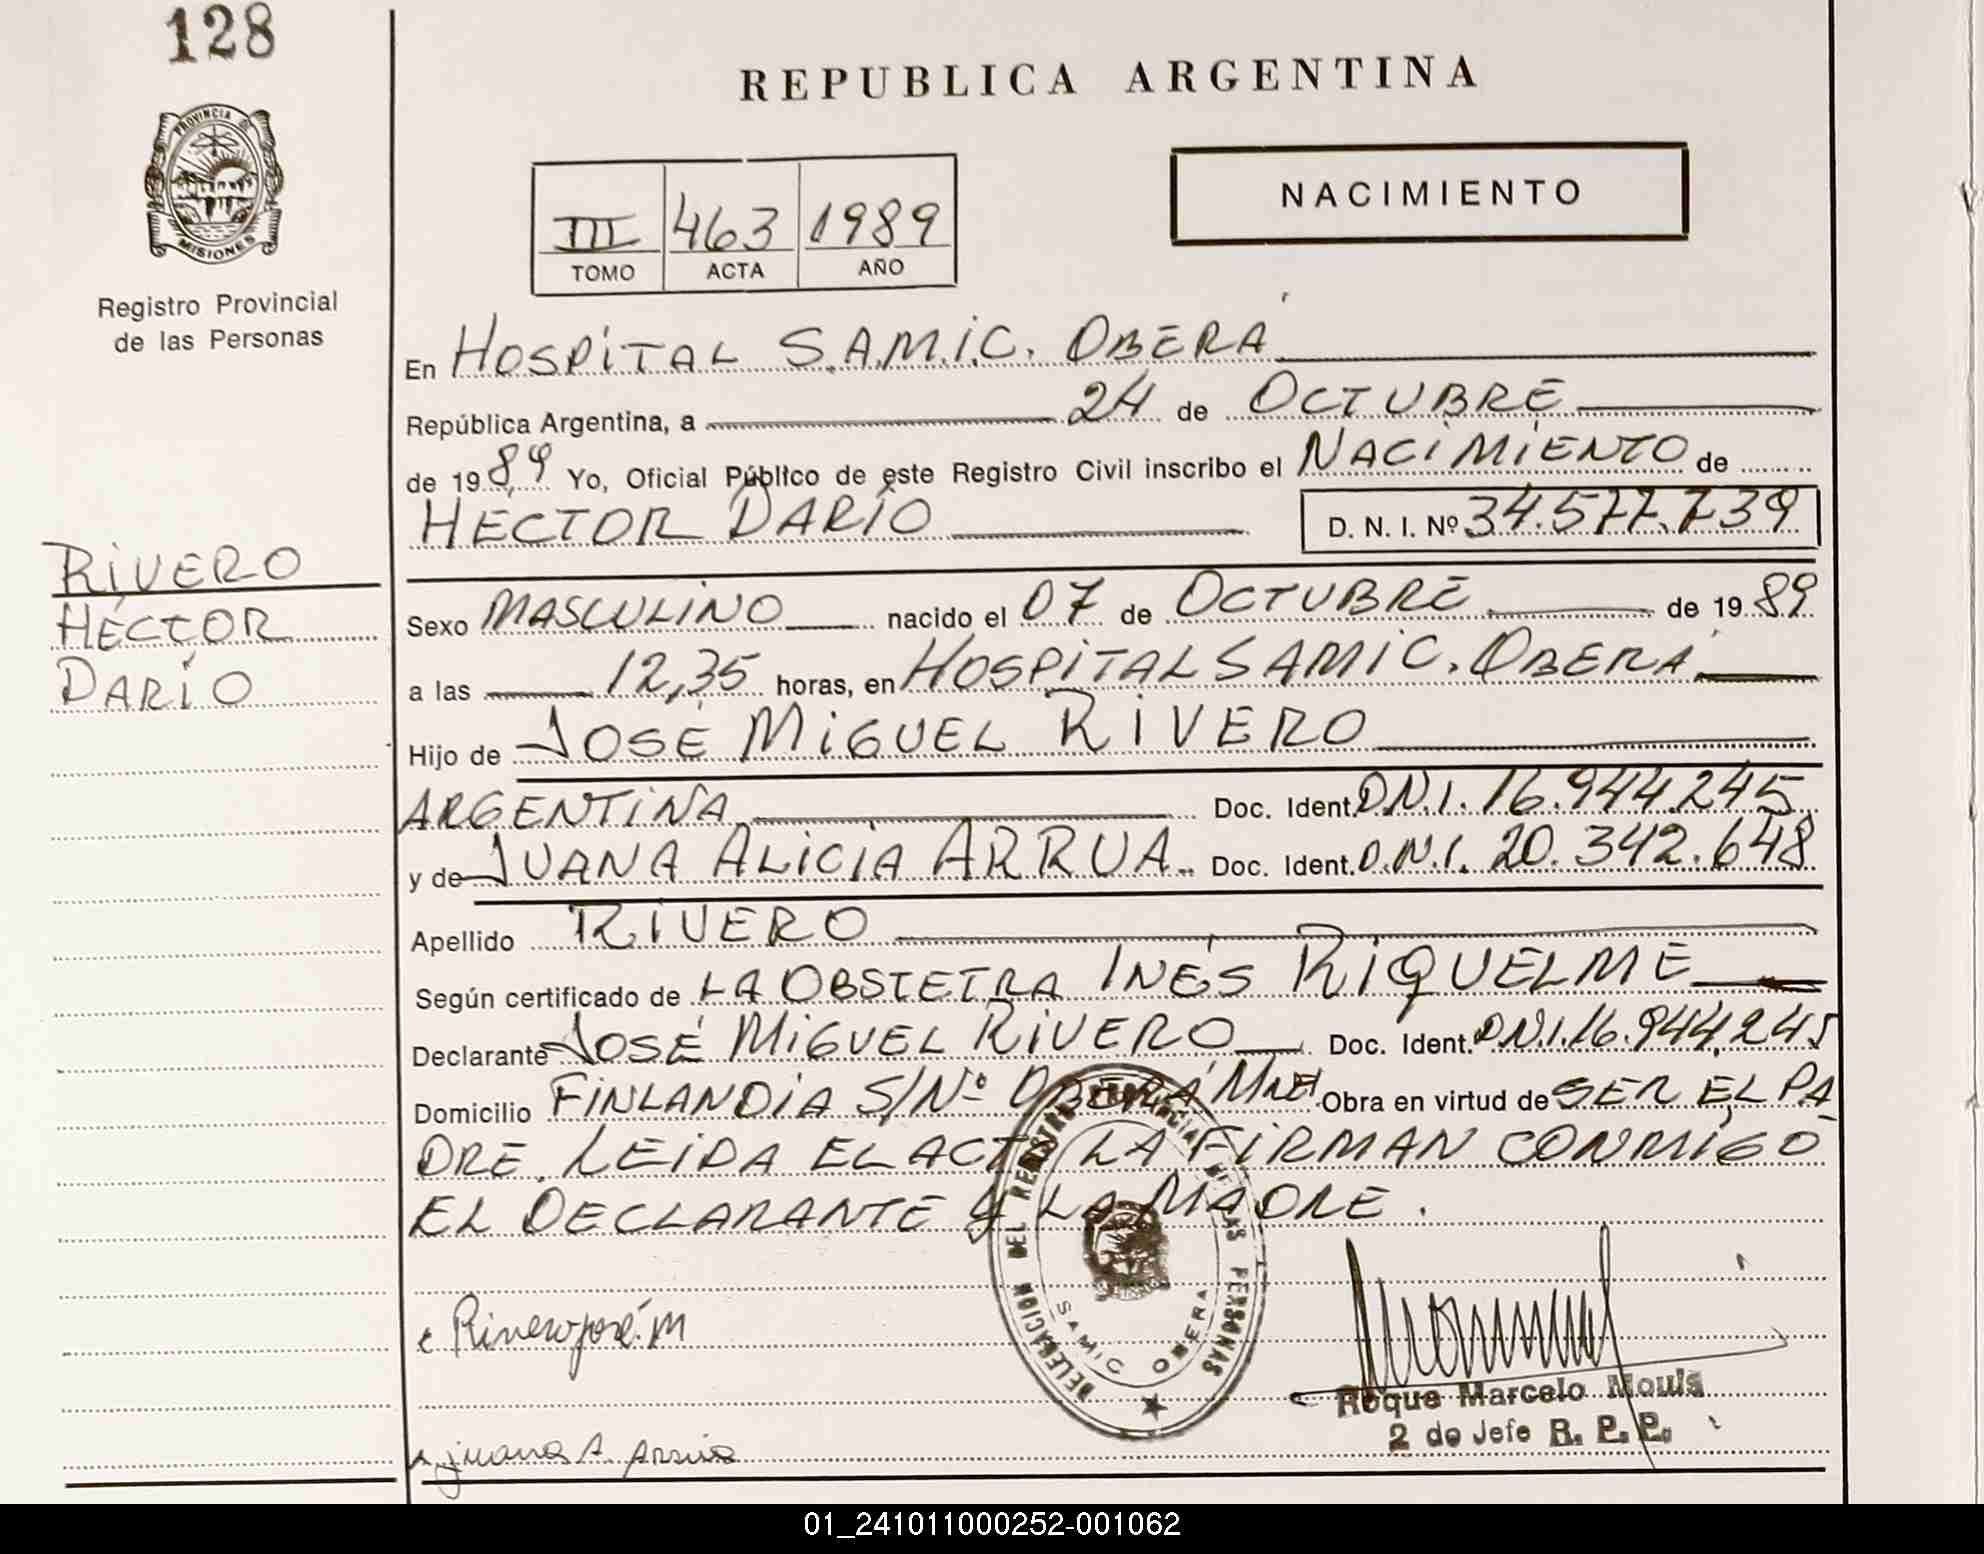 128
PROVINCIA DE
MISIONES
Registro Provincial
de las Personas
RIVERO
HÉCTOR
DARÍO
REPUBLICA ARGENTINA
NACIMIENTO
III 463 1989
TOMO ACTA AÑO
En HOSPITAL S.A.M.I.C. OBERÁ
República Argentina, a 24 de OCTUBRE
de 1989 Yo, Oficial Público de este Registro Civil inscribo el NACIMIENTO de
HECTOR DARÍO D. N. I. Nº 34.577.739
Sexo MASCULINO nacido el 07 de OCTUBRE de 1989
a las 12,35 horas, en HOSPITAL SAMIC. OBERÁ
Hijo de JOSÉ MIGUEL RIVERO
ARGENTINA Doc. Ident. D.N.I. 16.944.245
y de JUANA ALICIA ARRUA Doc. Ident. D.N.I. 20.342.648
Apellido RIVERO
Según certificado de LA OBSTETRA INÉS RIQUELME
Declarante JOSÉ MIGUEL RIVERO Doc. Ident. D.N.I. 16.944.245
Domicilio FINLANDIA S/Nº OBERÁ Mnes. Obra en virtud de SER EL PA
DRE. LEIDA EL ACTA LA FIRMAN CONMIGO
EL DECLARANTE Y LA MADRE.
DELEGACION DEL REGISTRO PROVINCIAL DE LAS PERSONAS
SAMIC OBERA
Rivero José. M
Juana A. Arrua
Roque Marcelo Mouls
2 do Jefe R. P. P.
01_241011000252-001062